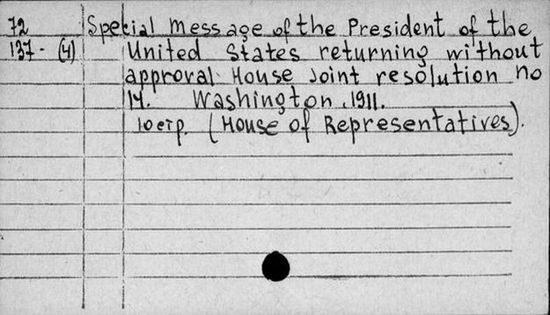 72 Special message of the President of the
137-(4) United States returning without
approval House Joint resolution no
14. Washington, 1911.
10 стр. (House of Representatives).